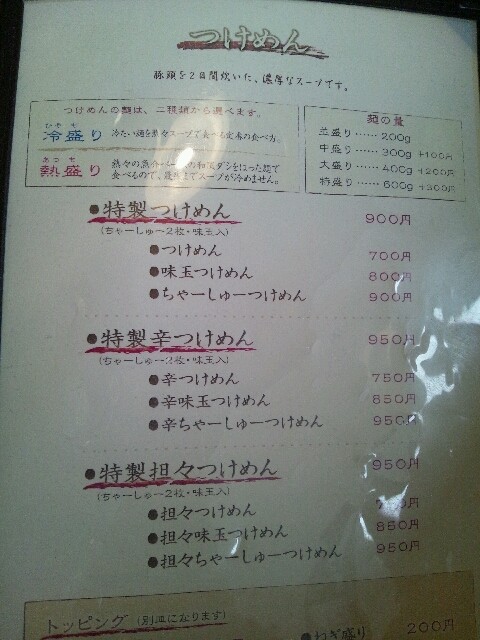 つけめん
豚頭を2日間炊いた、濃厚なスープです。
つけめんの麺は、二種類から選べます。
ひやもり
冷盛り 冷たい麺を熱々スープで食べる定番の食べ方。
あつもり
熱盛り 熱々の魚介の和風ダシをはった麺で
食べるので、最後までスープが冷めません。
麺の量
並盛り …… 200g
中盛り …… 300g +100円
大盛り …… 400g +200円
特盛り …… 600g +300円
●特製つけめん 900円
(ちゃーしゅー2枚・味玉入)
●つけめん 700円
●味玉つけめん 800円
●ちゃーしゅーつけめん 900円
●特製辛つけめん 950円
(ちゃーしゅー2枚・味玉入)
●辛つけめん 750円
●辛味玉つけめん 850円
●辛ちゃーしゅーつけめん 950円
●特製担々つけめん 950円
(ちゃーしゅー2枚・味玉入)
●担々つけめん
●担々味玉つけめん 850円
●担々ちゃーしゅーつけめん 950円
トッピング (別皿になります)
●ねぎ盛り 200円